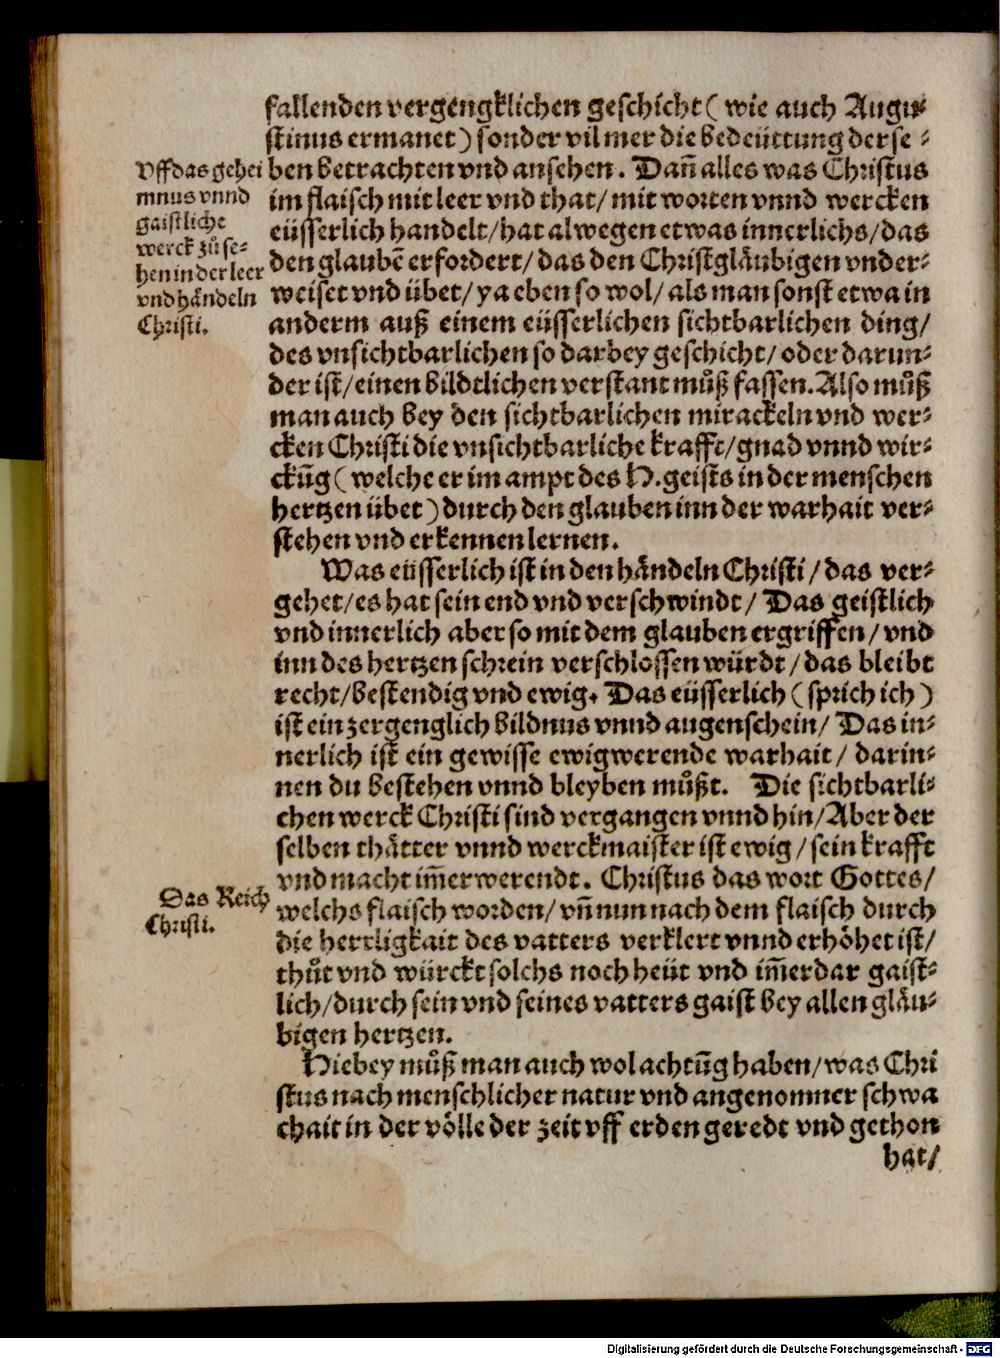 fallenden vergengklichen geschicht ( wie auch Augu⸗
stinus ermanet ) sonder vil mer die bedeüttung der se⸗
ben betrachten vnd ansehen. Dañ alles was Christus
im flaisch mit leer vnd that/ mit worten vnnd wercken
eüsserlich handelt/ hat alwegen etwas innerlichs/ das
den glaubē erfordert/ das den Christgläubigen vnder⸗
weiset vnd übet/ ya eben so wol/ als man sonst etwa in
anderm auß einem eüsserlichen sichtbarlichen ding/
des vnsichtbarlichen so darbey geschicht/ oder darun⸗
der ist/ einen bildtlichen verstant můß fassen. Also můß
man auch bey den sichtbarlichen mirackeln vnd wer⸗
cken Christi die vnsichtbarliche krafft/ gnad vnnd wir⸗
ckūg ( welche er im ampt des H. geists in der menschen
hertzen übet ) durch den glauben inn der warhait ver⸗
stehen vnd erkennen lernen.
Vff das gehei
mnus vnnd
gaistliche
werck zů se⸗
hen in der leer
vnd händeln
Christi.
Was eüsserlich ist in den händeln Christi / das ver⸗
gehet/ es hat sein end vnd verschwindt/ Das geistlich
vnd innerlich aber so mit dem glauben ergriffen / vnd
inn des hertzen schrein verschlossen würdt / das bleibt
recht/ bestendig vnd ewig. Das eüsserlich ( sprich ich )
ist ein zergenglich bildnus vnnd augenschein/ Das in⸗
nerlich ist ein gewisse ewigwerende warhait/ darin⸗
nen du bestehen vnnd bleyben můßt. Die sichtbarli⸗
chen werck Christi sind vergangen vnnd hin/ Aber der
selben thätter vnnd werckmaister ist ewig / sein krafft
vnd macht im̄erwerendt. Christus das wort Gottes/
welchs flaisch worden/ vn̄ nun nach dem flaisch durch
die herrligkait des vatters verklert vnnd erhöhet ist/
thůt vnd würckt solchs noch heüt vnd im̄erdar gaist⸗
lich/ durch sein vnd seines vatters gaist bey allen gläu⸗
bigen hertzen.
Das Reich
Christi.
Hiebey můß man auch wol achtūg haben/ was Chri
stus nach menschlicher natur vnd angenomner schwa
chait in der völle der zeit vff erden geredt vnd gethon
hat/
Digitalisierung gefördert durch die Deutsche Forschungsgemeinschaft - DFG